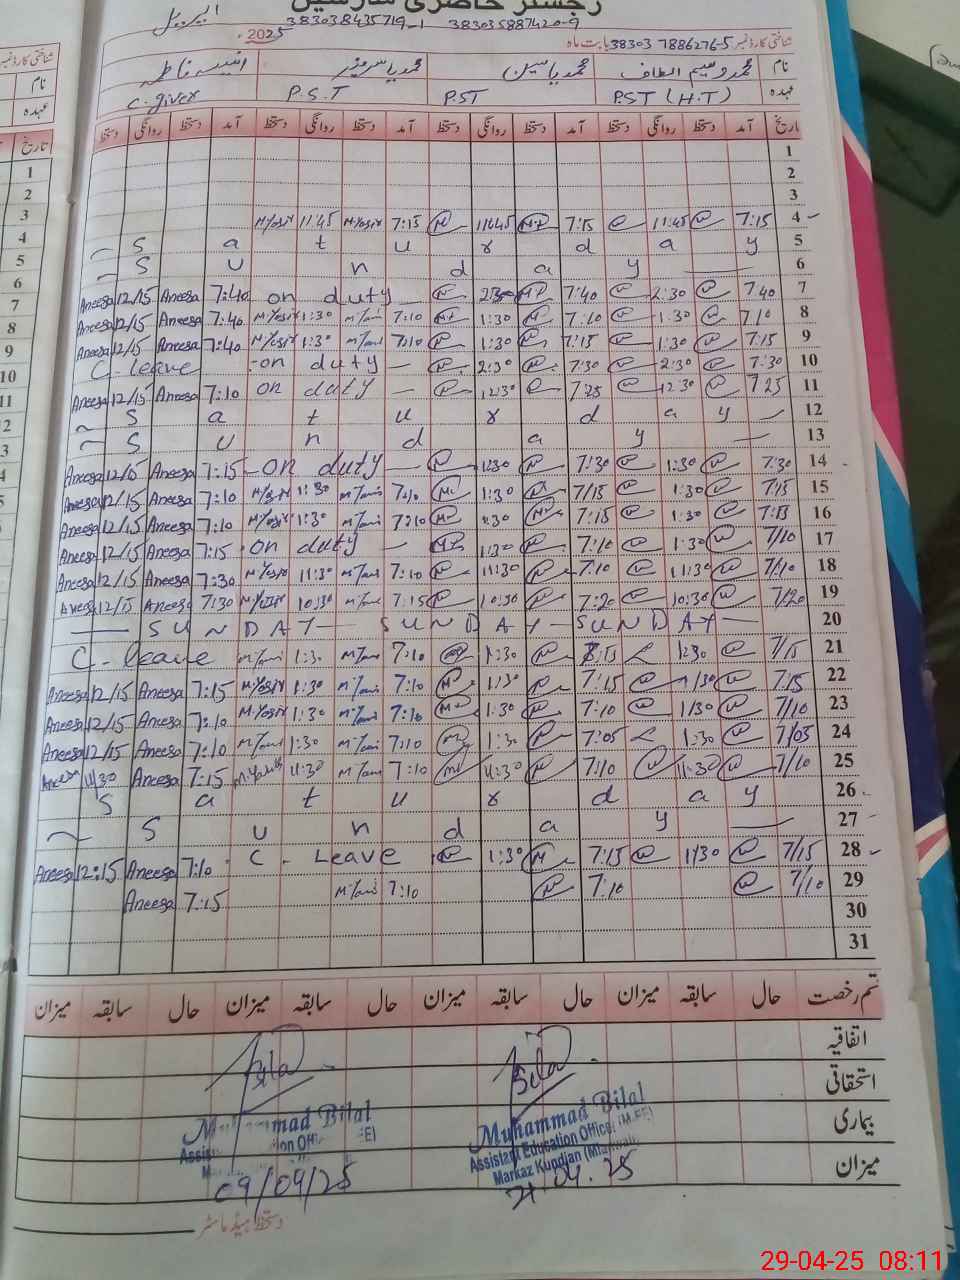 رجسٹر حاضری مدرسین
اپریل 383038435719-1 383035887420-9
شناختی کارڈ نمبر 38303 7886276-5 بابت ماہ 2025
نام محمد وسیم الطاف محمد یاسین محمد یاسر عزیز انیسہ فاطمہ
عہدہ PST (H.T) PST P.S.T C.giver
تاریخ آمد دستخط روانگی دستخط آمد دستخط روانگی دستخط آمد دستخط روانگی دستخط آمد دستخط روانگی دستخط
1
2
3
M/Yasir 11:45 M/Yasir 7:15 11:45 7:15 11:45 7:15 4
S a t u r d a y 5
S u n d a y 6
Aneesa 12/15 Aneesa 7:40 on duty 2:30 7:40 2:30 7:40 7
Aneesa 12/15 Aneesa 7:40 M/Yasir 1:30 7:10 1:30 7:10 1:30 7/10 8
Aneesa 12/15 Aneesa 7:40 M/Yasir 1:30 7:10 1:30 7:15 1:30 7:15 9
C-leave on duty 2:30 7:30 2:30 7:30 10
Aneesa 12/15 Aneesa 7:10 on duty 12:30 7:25 12:30 7:25 11
S a t u r d a y 12
S u n d a y 13
Aneesa 12/15 Aneesa 7:15 on duty 1:30 7:30 1:30 7:30 14
Aneesa 12/15 Aneesa 7:10 M/Yasir 1:30 7:10 1:30 7/15 1:30 7:15 15
Aneesa 12/15 Aneesa 7:10 M/Yasir 1:30 7:10 1:30 7:15 1:30 7:15 16
Aneesa 12/15 Aneesa 7:15 on duty 1:30 7:10 1:30 7/10 17
Aneesa 12/15 Aneesa 7:30 M/Yasir 11:30 7:10 11:30 7:10 11:30 7/10 18
Aneesa 12/15 Aneesa 7:30 M/Yasir 10:30 7:15 10:30 7:20 10:30 7/20 19
SUNDAY SUNDAY SUNDAY 20
C-leave 1:30 7:10 1:30 7:15 1:30 7/15 21
Aneesa 12/15 Aneesa 7:15 M/Yasir 1:30 7:10 1:30 7:15 1/30 7:15 22
Aneesa 12/15 Aneesa 7:10 M/Yasir 1:30 7:10 1:30 7:10 1/30 7/10 23
Aneesa 12/15 Aneesa 7:10 1:30 7:10 1:30 7:05 1:30 7/05 24
11/30 Aneesa 7:15 11:30 7:10 11:30 7:10 11:30 7/10 25
S a t u r d a y 26
S u n d a y 27
Aneesa 12:15 Aneesa 7:10 C-Leave 1:30 7:15 1/30 7/15 28
Aneesa 7:15 7:10 7:10 7/10 29
30
31
قسم رخصت حال سابقہ میزان حال سابقہ میزان حال سابقہ میزان حال سابقہ میزان
اتفاقیہ
استحقاقی
بیماری
میزان
Bilal Bilal
Muhammad Bilal Muhammad Bilal
Assistant Education Officer (M-EE)
Markaz Kundian (Mianwali)
09/04/25 21.04.25
دستخط ہیڈ ماسٹر
29-04-25 08:11